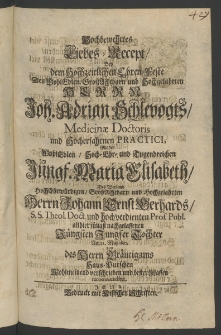 Hochbewehrtes
Liebes-Recept
Bey
dem Hochzeitlichen Ehren-Feste
Des WohlEdlen/ GroßAchtbarn und Hochgelahrten
HERRN
Joh. Adrian Schlevogts/
Medicinæ Doctoris
und Hocherfahrnen PRACTICI,
Mit der
WohlEdlen/ Hoch-Ehr- und Tugendreichen
Jungf. Maria Elisabeth/
Des Weyland
HochEhrwürdigen/ GroßAchtbarn und Hochgelahrten
Herrn Johann Ernst Gerhards/
S.S. Theol. Doct. und Hochverdienten Prof. Publ.
allhier
Jüngsten Jungfer Tochter
des Herrn Bräutigams
Haus-Purschen
Wohlmeinend verschrieben und
JENA/
Gedruckt mit Schrifften.